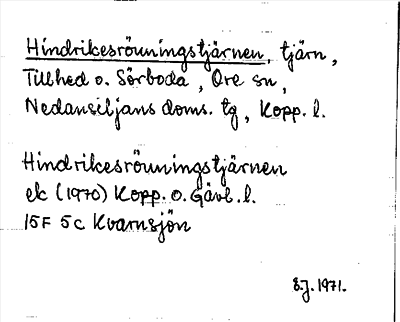 Hindrikesröningstjärnen, tjärn,
Tillhed o. Sörboda, Ore sn,
Nedansiljans doms. tg, Kopp. l.
Hindrikesröningstjärnen
ek (1970) Kopp. o. Gävl. l.
15F 5c Kvarnsjön
S.J. 1971.